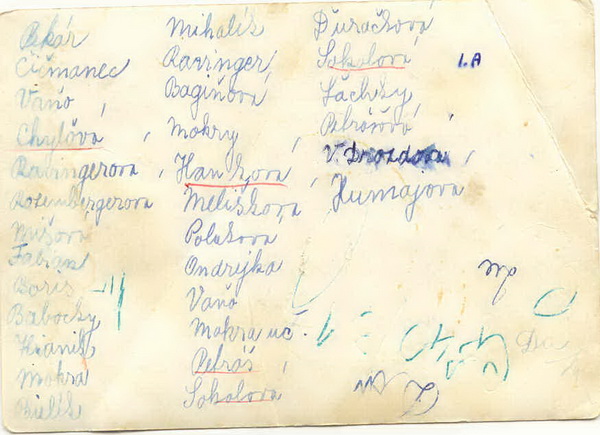 Pekár
Čičmanec
Vaňo ,
Chylová ,
Ravingerova ,
Rozenbergerova
Mišová
Fabian
Boris
Babocky
Hianik
Mokra
Bielik
Mihalik
Ravinger
Bagiňová
Mokry ,
Hankova ,
Meliškova
Polakova
Ondrejka
Vaňo
Mokra uč.
Petráš ,
Sokolova
Ďuračková
Sokolová
I.A
Šáchky
Petrášová
V. Drozdova ,
Humajova